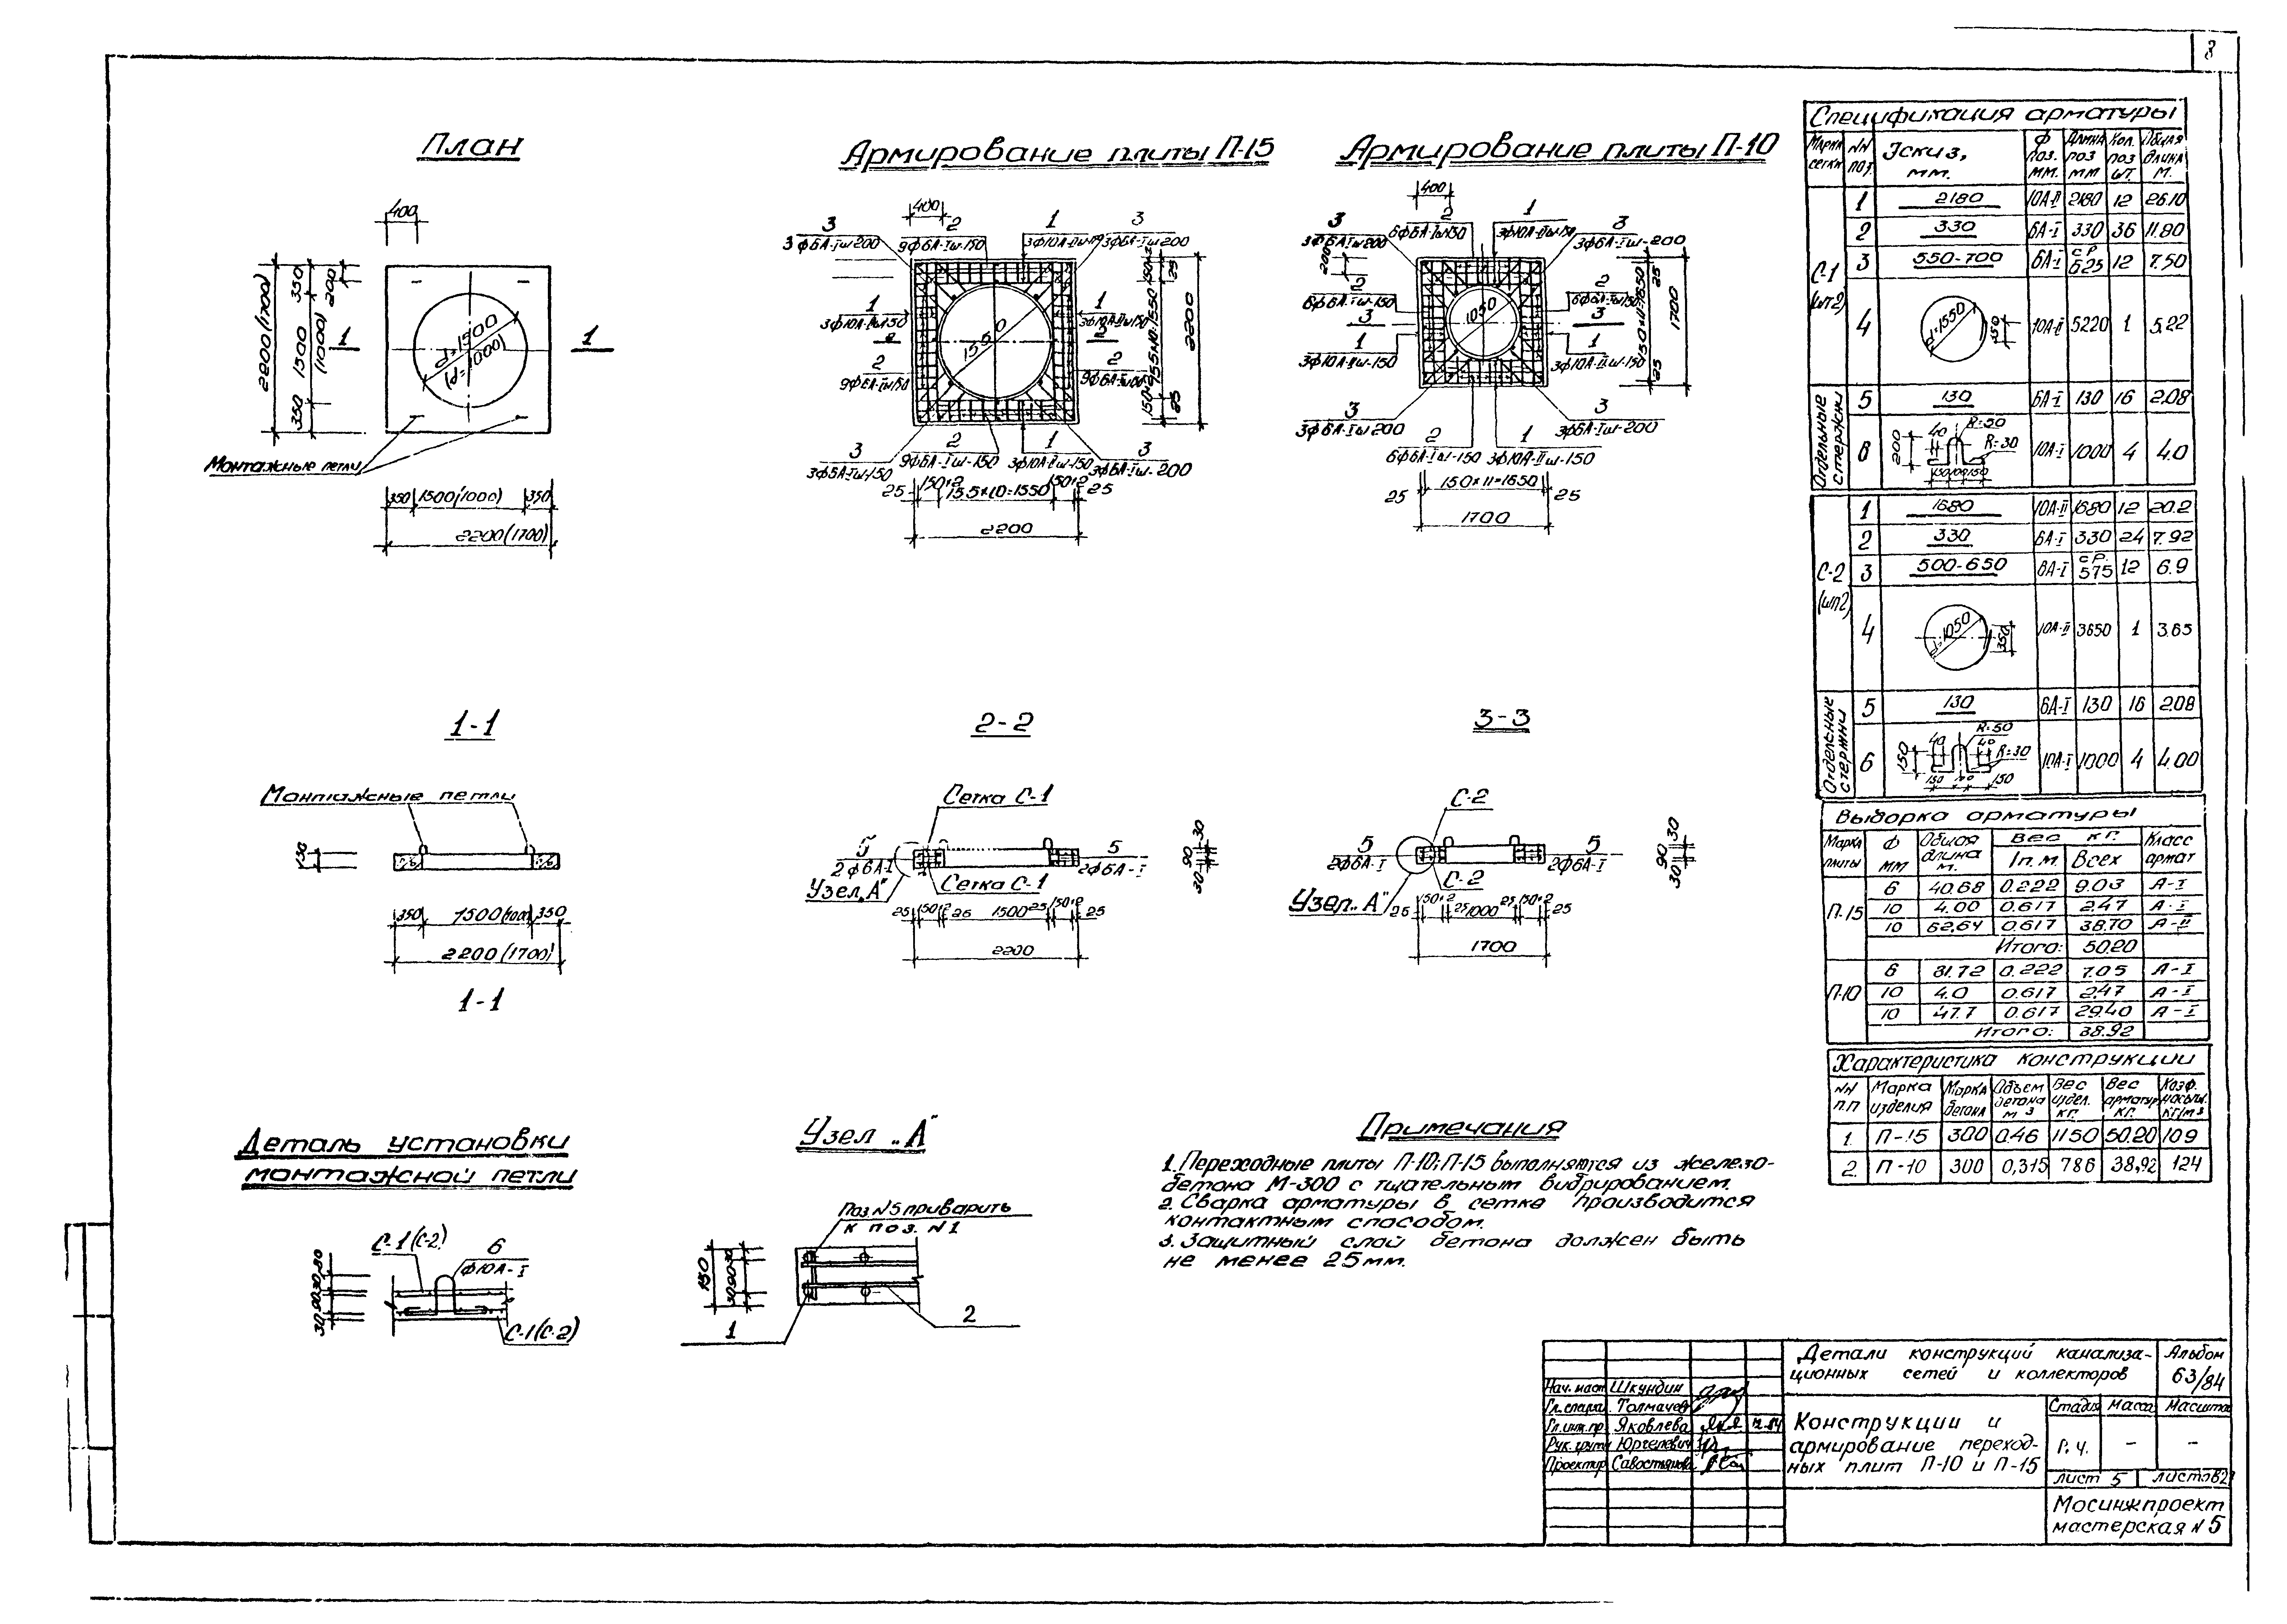 8
План
400
2200(1700)
350 1500 350
(1000)
200
d=1500
(d=1000)
1
1
Монтажные петли
350 1500(1000) 350
2200(1700)
Армирование плиты П-15
400
3
3ф6А-Iш200
2
9ф6А-Iш-150
1
3
3ф6А-Iш200
1
3ф10А-IIш150
1
3ф10А-IIш150
1550
2
2
2
9ф6А-Iш150
2
3
3ф6А-Iш-150
2
9ф6А-Iш-150
1
3ф10А-IIш-150
3
3ф6А-Iш-200
25 150×2 155×10=1550 150×2 25
2200
25
25
2200
Армирование плиты П-10
400
3
3ф6А-Iш200
2
6ф6А-Iш150
1
3
3ф6А-Iш-200
200
2
6ф6А-Iш-150
2
6ф6А-Iш150
1050
3
3
1
3ф10А-IIш-150
1
3ф10А-IIш-150
3
3ф6А-Iш200
2
6ф6А-Iш-150
1
3ф10А-IIш-150
3
3ф6А-Iш-200
25 150×11=1650 25
1700
25
150×11=1650
25
1700
1-1
Монтажные петли
130
350 1500(1000) 350
2200(1700)
1-1
2-2
Сетка С-1
5
2ф6А-I
5
2ф6А-I
Узел „А"
Сетка С-1
30 90 30
25 150×2 1500 25 150×2 25
2200
3-3
С-2
5
2ф6А-I
5
2ф6А-I
Узел „А"
С-2
30 90 30
25 150×2 25 1000 25 150×2 25
1700
Деталь установки
монтажной петли
С-1(С-2)
6
ф10А-I
С-1(С-2)
Узел „А"
Поз.N5 приварить
к поз. N1
150
30 90 30
1
2
Примечания
1. Переходные плиты П-10; П-15 выполняются из железо-
бетона М-300 с тщательным вибрированием.
2. Сварка арматуры в сетке производится
контактным способом.
3. Защитный слой бетона должен быть
не менее 25мм.
Спецификация арматуры
Марка сетки NN поз. Эскиз, мм. Ф поз. мм. Длина поз мм Кол. поз шт. Общая длина м.
С-1 (шт2)
1 2180 10А-II 2180 12 26.10
2 330 6А-I 330 36 11.90
3 550-700 6А-I ср 625 12 7.50
4 d=1550 350 10А-II 5220 1 5.22
Отдельные стержни
5 130 6А-I 130 16 2.08
6 200 40 R=50 R=30 150 100 150 10А-I 1000 4 4.0
С-2 (шт2)
1 1680 10А-II 1680 12 20.2
2 330 6А-I 330 24 7.92
3 500-650 6А-I ср. 575 12 6.9
4 d=1050 350 10А-II 3650 1 3.65
Отдельные стержни
5 130 6А-I 130 16 208
6 150 40 R=50 40 R=30 150 100 150 10А-I 1000 4 4.00
Выборка арматуры
Марка плиты Ф мм Общая длина м. Вес кг. Класс армат
1п.м. Всех
П-15
6 40.68 0.222 9.03 А-I
10 4.00 0.617 2.47 А-I
10 62.64 0.617 38.70 А-II
Итого: 50.20
П-10
6 31.72 0.222 7.05 А-I
10 4.0 0.617 2.47 А-I
10 47.7 0.617 29.40 А-I
Итого: 38.92
Характеристика конструкции
NN п.п Марка изделия Марка бетона Объем бетона м3 Вес издел. кг. Вес арматур кг. Коэф. насыщ. кг/м3
1. П-15 300 0.46 1150 50.20 109
2. П-10 300 0,315 786 38,92 124
Нач. маст Шкундин
Гл.спец. Толмачев
Гл.инж.пр. Яковлева 12.84
Рук.групп Юргелевич
Проектир Савостьянова
Детали конструкций канализа-
ционных сетей и коллекторов
Альбом
63/84
Конструкции и
армирование переход-
ных плит П-10 и П-15
Стадия Масса Масштаб
Р.ч. – –
лист 5
Мосинжпроект
мастерская N5